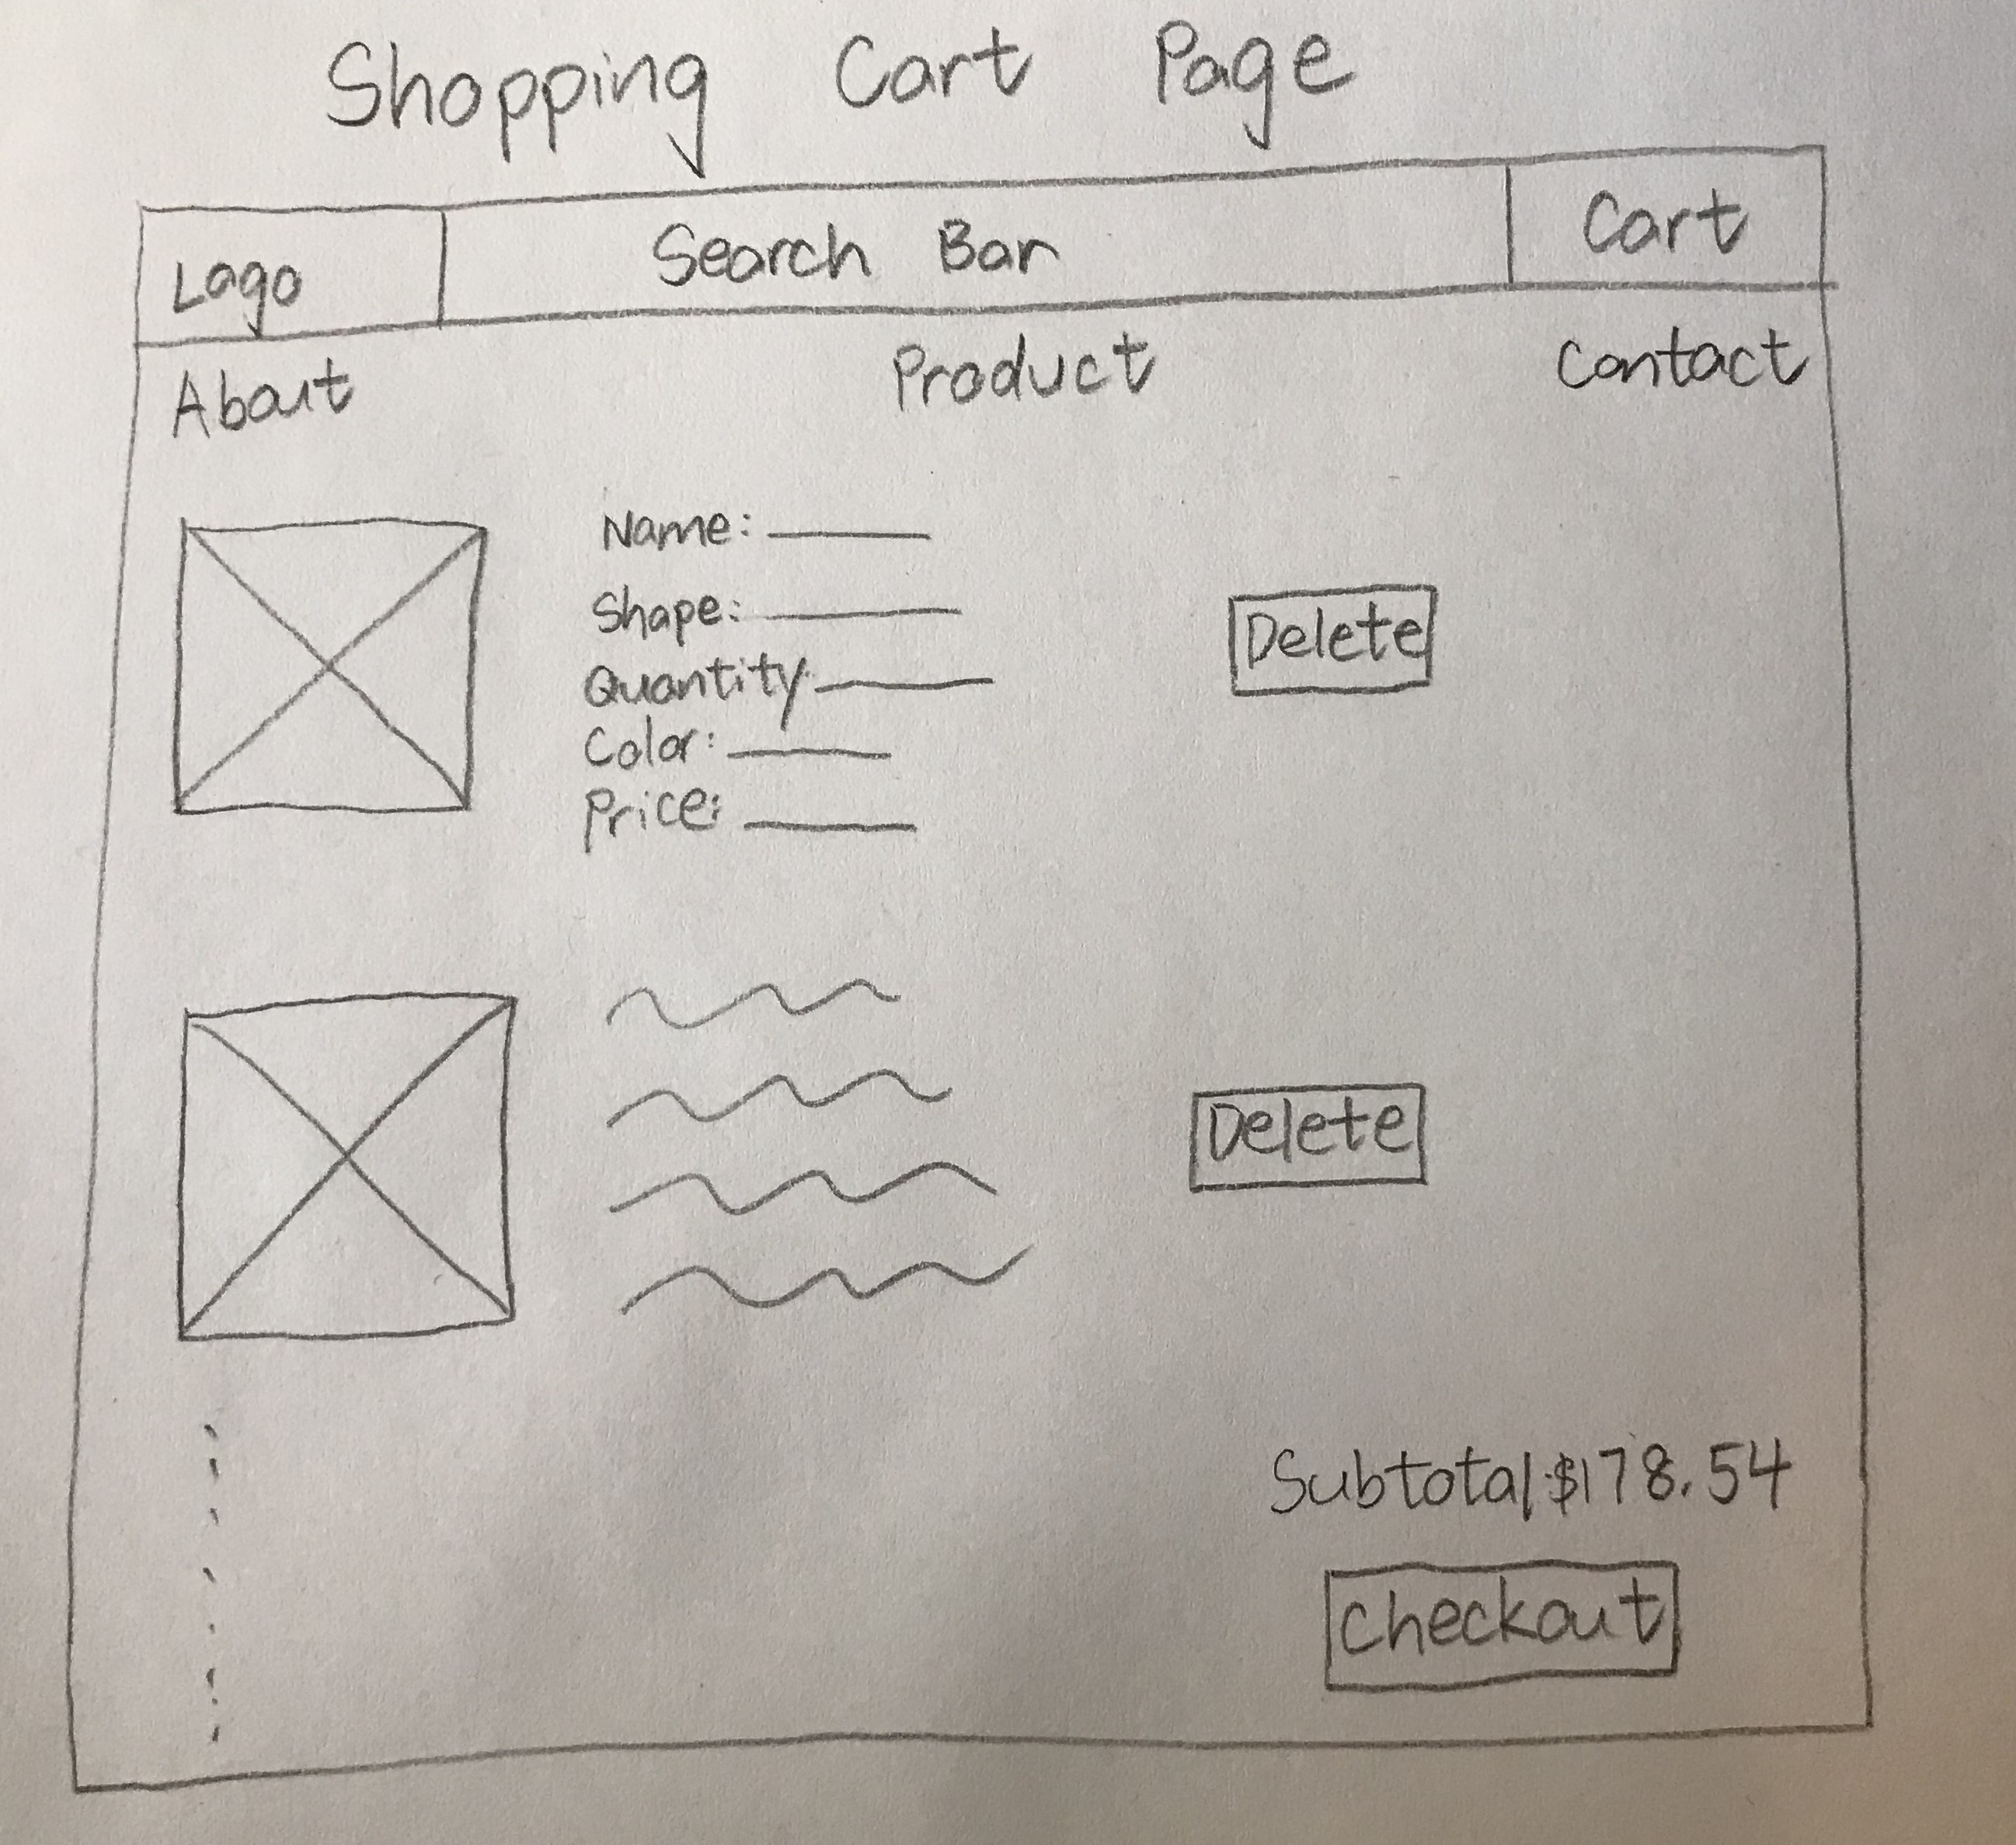 Shopping Cart Page
Logo Search Bar Cart
About Product Contact
Name:
Shape:
Quantity:
Color:
Price:
Delete
Delete
Subtotal:$178.54
Checkout